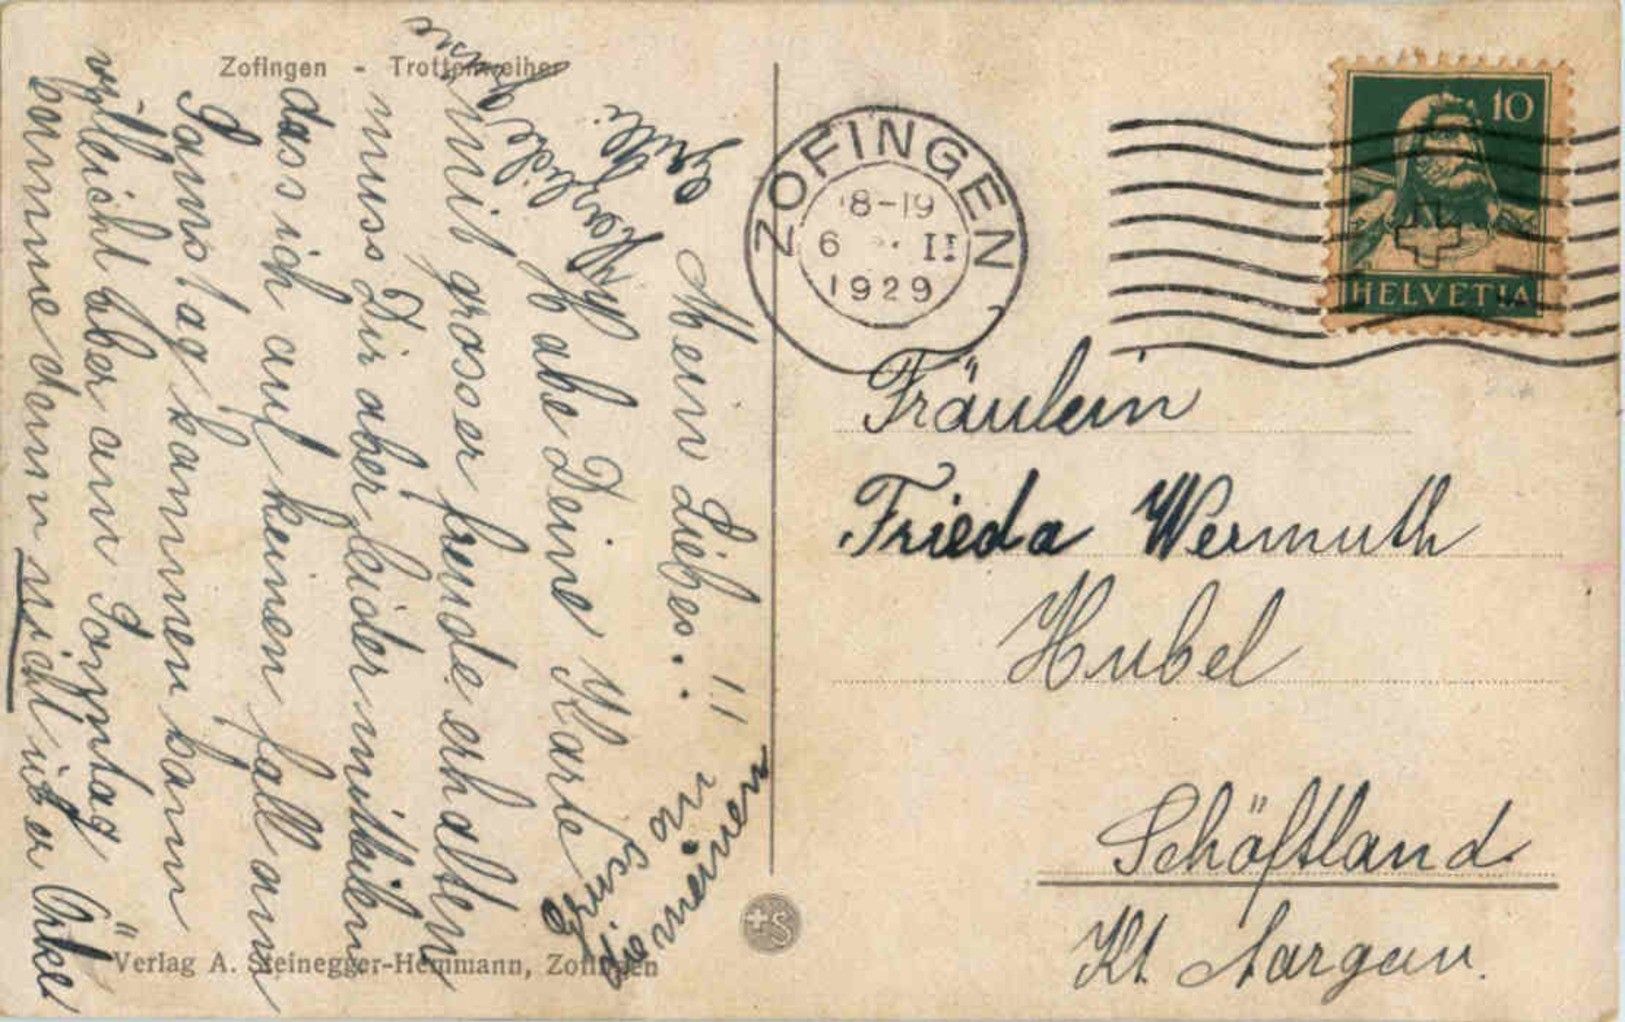 Zofingen - Trottenweiher
Mein Liebes. !!
Habe Deine Karte
mit grosser freude erhalten
muss Dir aber leider mitteilen
dass ich auf keinen fall am
Samstag kommen kann
villeicht aber am Sonntag
komme dann nicht über Ürke
Gruss an
die meinen
Herzliche Grüsse
ZOFINGEN
18-19
6 II
1929
10
HELVETIA
Fräulein
Frieda Wermuth
Hubel
Schöftland
Kt. Aargau.
+S
Verlag A. Steinegger-Hemmann, Zofingen